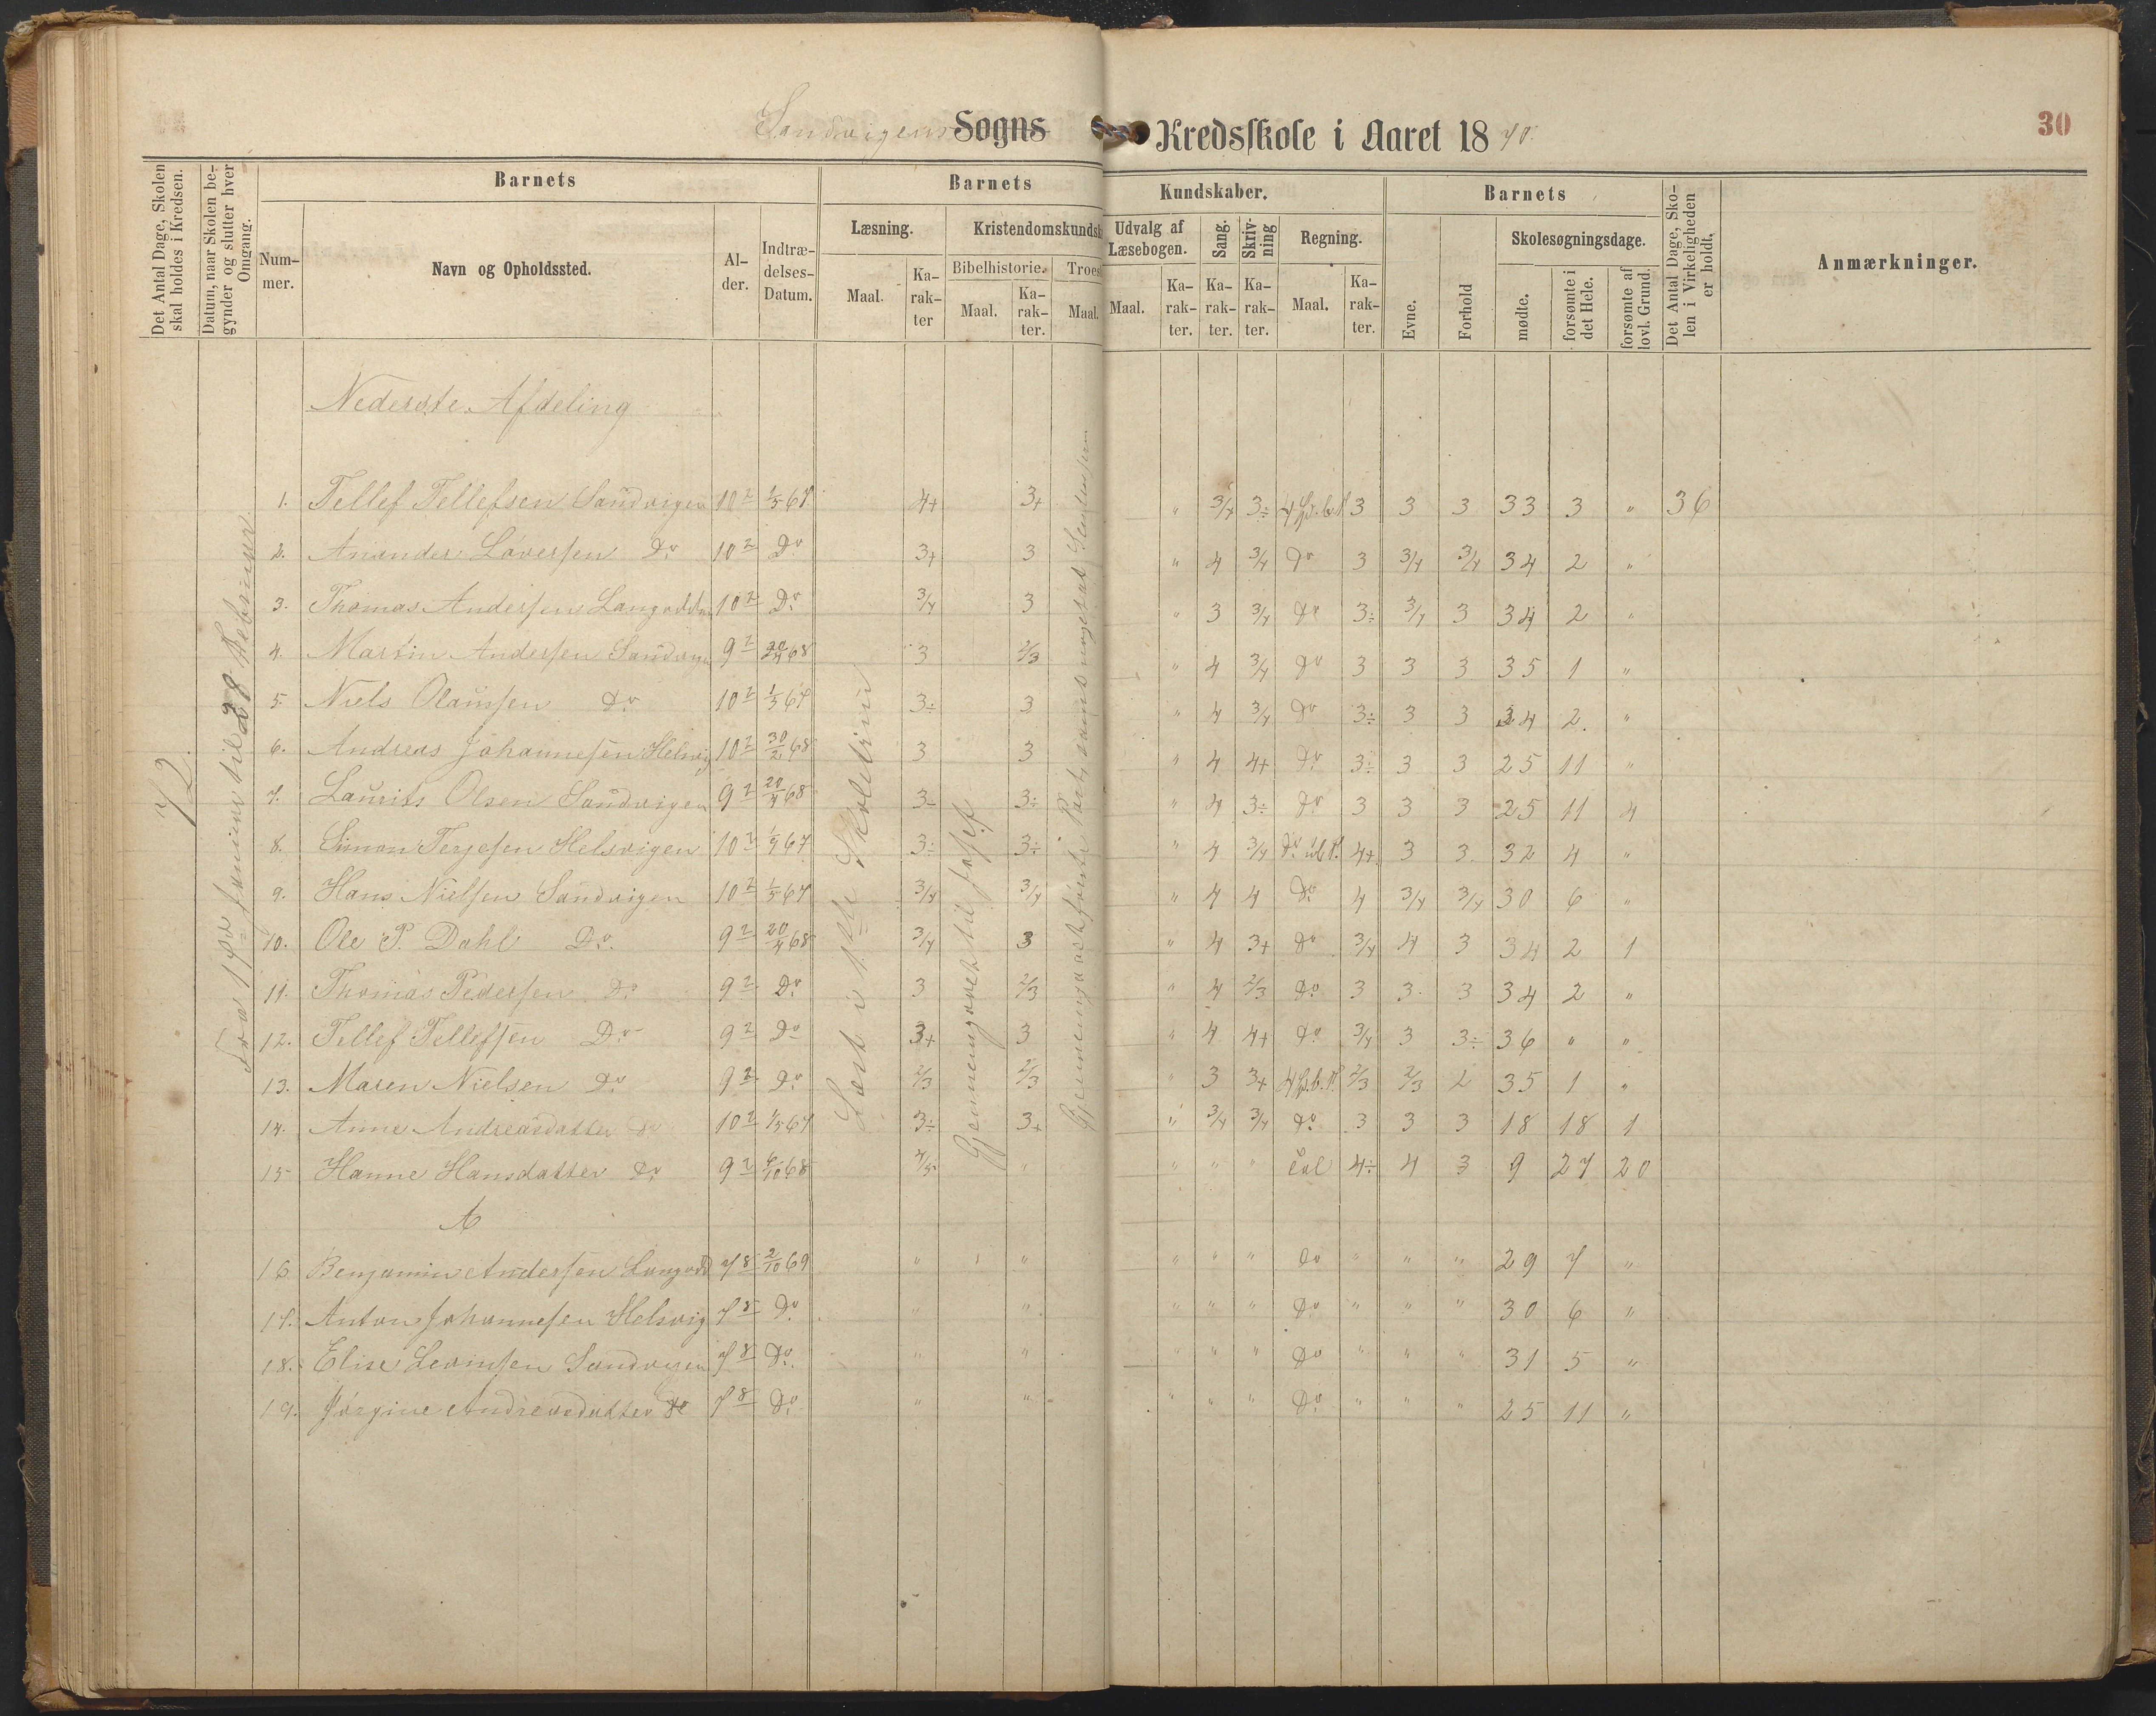 Sandvigens Sogns Kredsskole i Aaret 1870.
30
Det Antal Dage, Skolen skal holdes i Kredsen.
Datum, naar Skolen begynder og slutter hver Omgang.
Barnets
Nummer.
Navn og Opholdssted.
Alder.
Indtrædelses-Datum.
Barnets
Kundskaber.
Læsning.
Maal.
Karakter
Kristendomskundsk
Bibelhistorie.
Maal.
Karakter.
Troes
Maal.
Udvalg af Læsebogen.
Maal.
Karakter.
Sang.
Karakter.
Skrivning
Karakter.
Regning.
Maal.
Karakter.
Barnets
Evne.
Forhold
Skolesøgningsdage.
mødte.
forsømte i det Hele.
forsømte af lovl. Grund.
Det Antal Dage, Skolen i Virkeligheden er holdt.
Anmærkninger.
72.
Fra 17de Januar til 28 Februar
Læst i 1ste Skoletrin
Gjennemgaaet til Josef
Nederste Afdeling
1. Tellef Tellefsen Sandvigen 10 2 1/5 67 4+ 3+ " 3/4 3÷ 3 3 3 33 3 " 36
2. Anander Løversen Do 10 2 Do 3+ 3 " 4 3/4 Do 3 3/4 3/4 34 2 "
3. Thomas Andersen Langodden 10 2 Do 3/4 3 " 3 3/4 Do 3÷ 3/4 3 34 2 "
4. Martin Andersen Sandvigen 9 2 20/4 68 3 2/3 " 4 3/4 Do 3 3 3 35 1 "
5. Niels Olaussen Do 10 2 1/5 67 3÷ 3 " 4 3/4 Do 3÷ 3 3 34 2. "
6. Andreas Johannesen Helsvig 10 2 30/2 68 3 3 " 4 4+ Do 3÷ 3 3 25 11 "
7. Laurits Olsen Sandvigen 9 2 20/4 68 3÷ 3÷ " 4 3÷ Do 3 3 3 25 11 4
8. Simon Terjesen Helsvigen 10 2 1/5 67 3÷ 3÷ " 4 3/4 Do 4+ 3 3. 32 4 "
9. Hans Nielsen Sandvigen 10 2 1/5 67 3/4 3/4 " 4 4 Do 4 3/4 3/4 30 6 "
10. Ole P. Dahl Do. 9 2 20/4 68 3/4 3 " 4 3+ Do 3/4 4 3 34 2 1
11. Thomas Pedersen Do 9 2 Do 3 2/3 " 4 2/3 Do 3 3. 3 34 2 "
12. Tellef Tellefsen Do 9 2 Do 3+ 3 " 4 4+ Do 3/4 3 3÷ 36 " "
13. Maren Nielsen Do 9 2 Do 2/3 2/3 " 3 3+ 2/3 2/3 2 35 1 "
14. Anne Andreasdatter Do 10 2 1/5 67 3÷ 3+ " 3/4 3/4 Do 3 3 3 18 18 1
15 Hanne Hansdatter Do 9 2 6/10 68 4/5 " " " " 4÷ 4 3 9 27 20
A
16. Benjamin Andersen Langodd 7 8 2/10 69 " " " " " Do " " " 29 7 "
17. Anton Johannesen Helsvig 7 8 Do " " " " " Do " " " 30 6 "
18. Elise Levinsen Sandvigen 7 8 Do " " " " " Do " " " 31 5 "
19. Jørgine Andreasdatter Do 7 8 Do " " " " " Do " " " 25 11 "